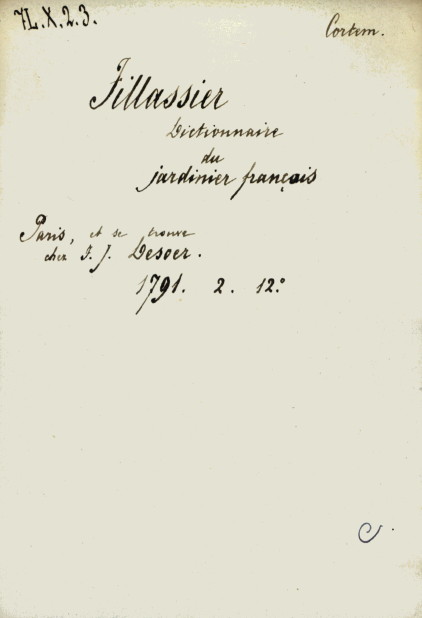 7L.X.2.3.
Cortem.
Fillassier
Dictionnaire
du
jardinier français
Paris, et se trouve
chez J. J. Desoer.
1791. 2. 12.°
C.